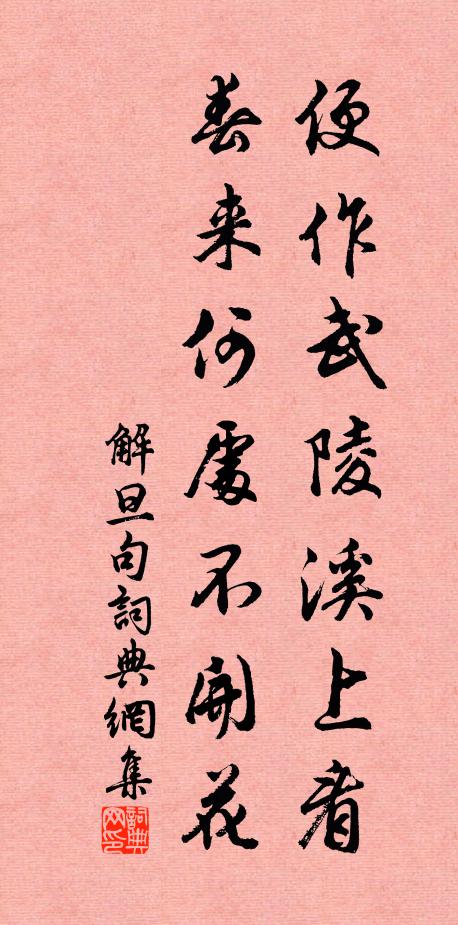 便作武陵溪上看
春来何處不開花
解旦句詞典網集
詞典
网印